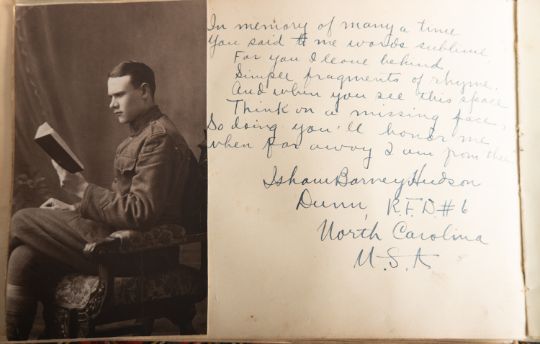 In memory of many a time
You said to me words sublime
For you I leave behind
Simple fragments of rhyme.
And when you see this space
Think on a missing face,
So doing you'll honor me
when far away I am from thee
Isham Barney Hudson
Dunn, R.F.D. #6
North Carolina
U.S.A